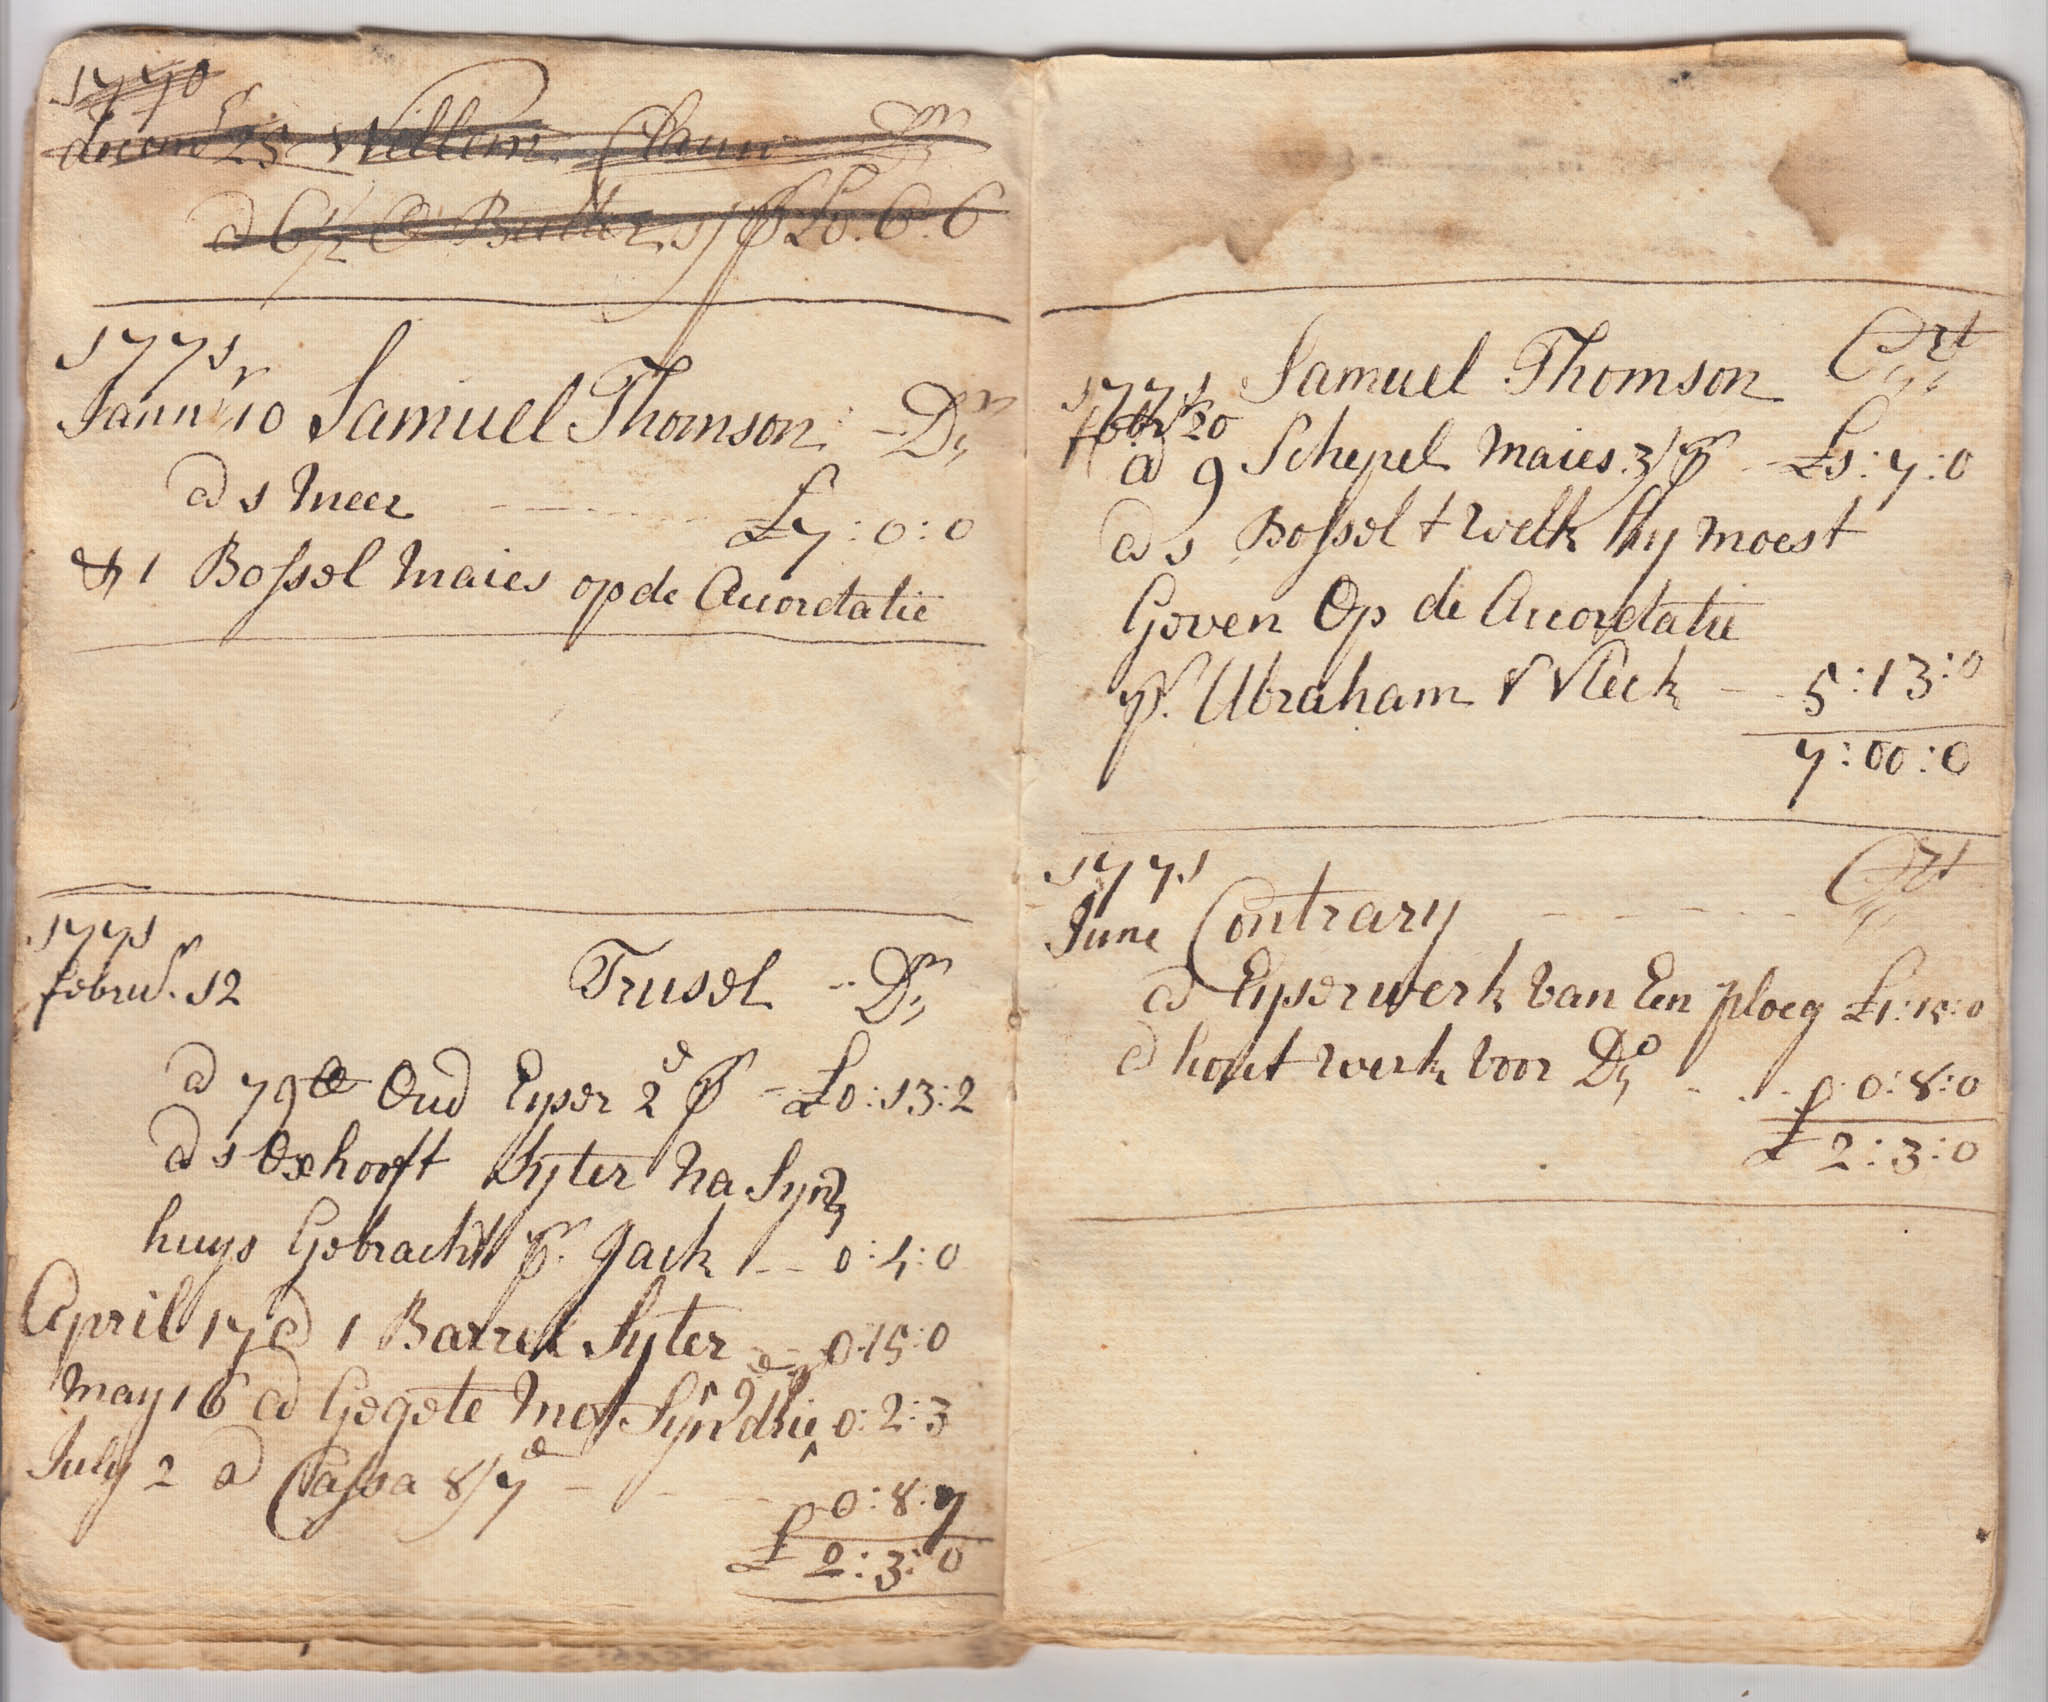 1770
decemr 25 Willem Dr
@ 6½ ℔ Butter 1/ ⅌ £0.6.6
1771
Januar 10 Samuel Thomson: - Dr
@ 1 meer £7:0:0
& 1 Bossel maies op de Accordatie
1771
februr. 12 Trusel -- Dr
@ 79 ℔ Oud Eyser 2d ⅌ - £0:13:2
@ 1 Oxhooft Syter na Syn
huys Gebracht pr. Jack -- 0:4:0
April 17 @ 1 Barrel Syter -- 0:15:0
may 16 @ Gegote met Syn 0:2:3
July 2 @ Cassa 8/7d - 0:8:7
£ 2:3:0
Samuel Thomson Crt
1771
febr 20
@ 9 Schepel maies 3/ ⅌ - £1:7:0
@ 1 Bossel + welk hy moest
Geven Op de Accordatie
pr. Abraham V Vleck - 5:13:0
7:00:0
1771 Crt
June Contrary
@ Eyserwerk van Een ploeg £1:15:0
@ hout werk voor Do - 0:8:0
£ 2:3:0